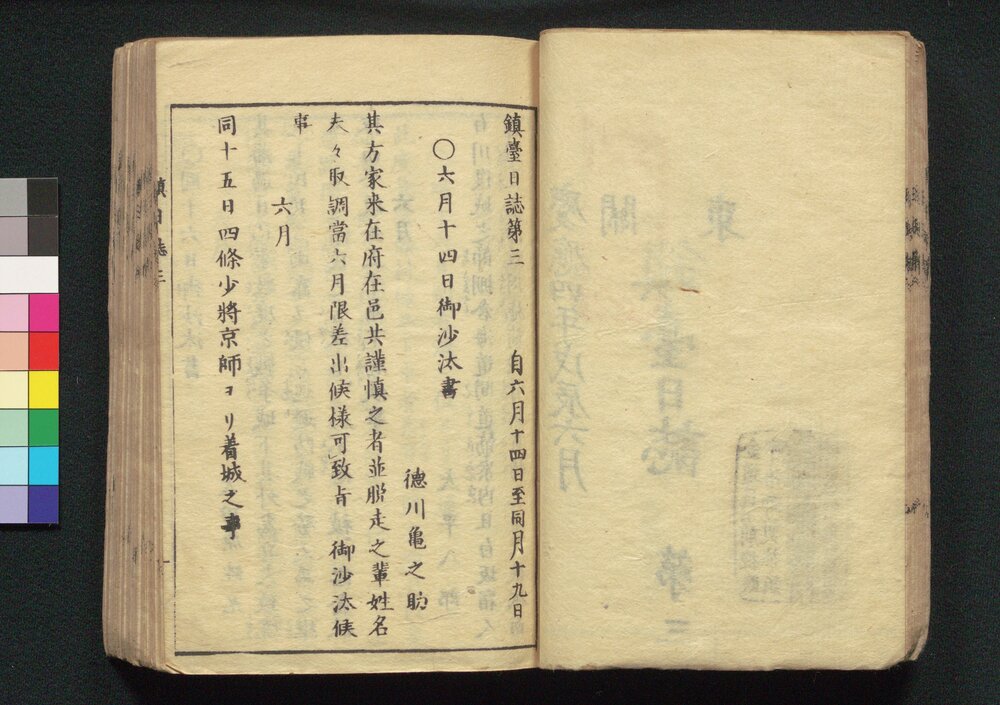 鎮臺日誌第三 自六月十四日至同月十九日
〇六月十四日御沙汰書
德川亀之助
其方家来在府在邑共謹慎之者並脱走之輩姓名
夫々取調當六月限差出候様可致旨 御沙汰候
事
六月
同十五日四條少將京師ヨリ着城之事
鎮日誌三